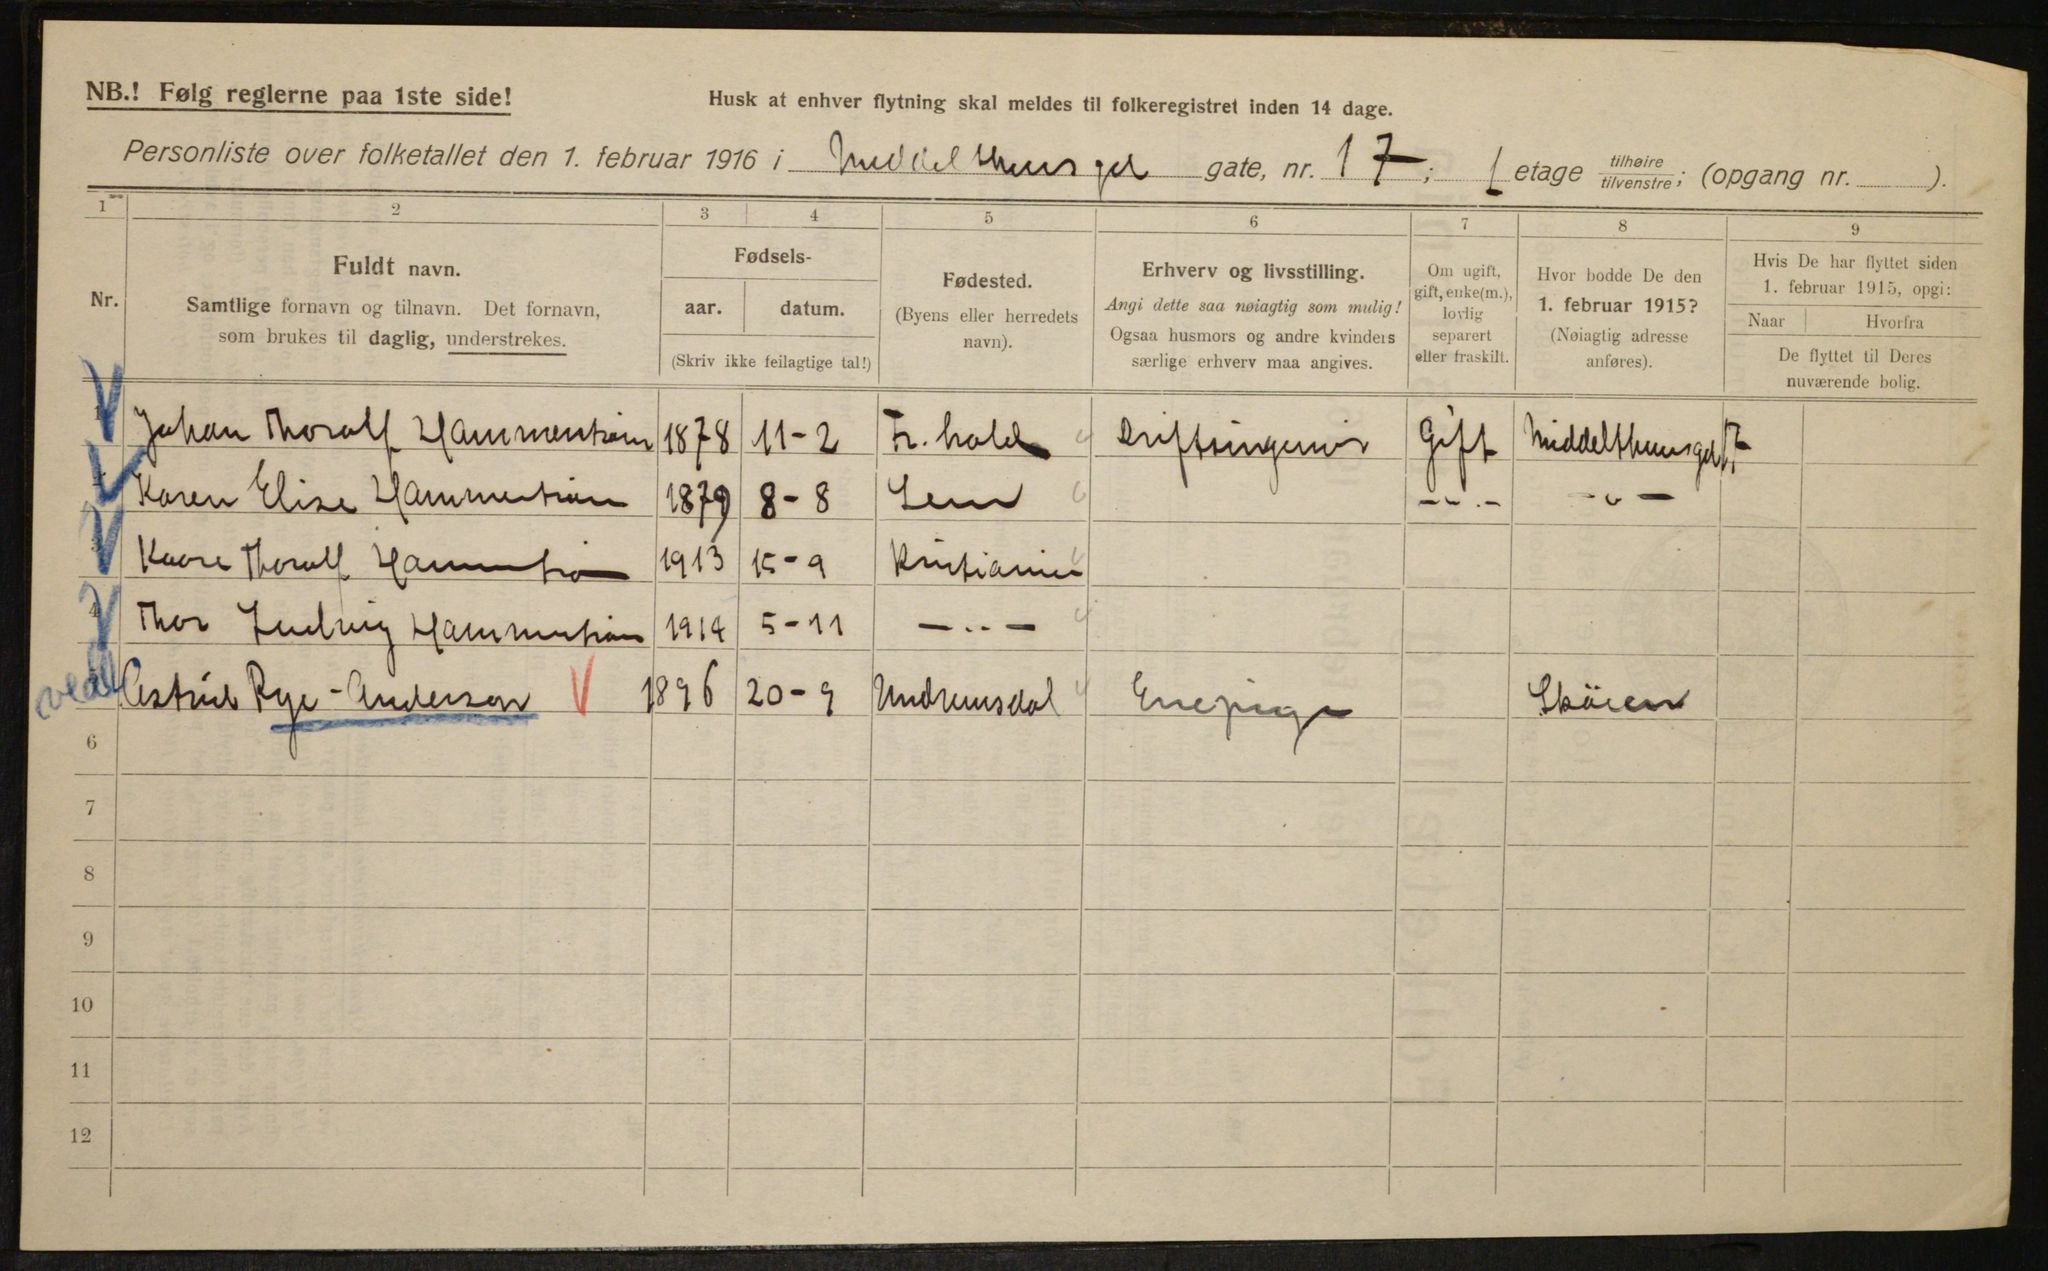 NB.! Følg reglerne paa 1ste side!
Husk at enhver flytning skal meldes til folkeregistret inden 14 dage.
Personliste over folketallet den 1. februar 1916 i Middelthunsgd gate, nr. 17; 1 etage tilhøire/tilvenstre; (opgang nr. ).
1 2 3 4 5 6 7 8 9
Nr.
Fuldt navn.
Samtlige fornavn og tilnavn. Det fornavn,
som brukes til daglig, understrekes.
Fødsels-
aar. datum.
(Skriv ikke feilagtige tal!)
Fødested.
(Byens eller herredets
navn).
Erhverv og livsstilling.
Angi dette saa nøiagtig som mulig!
Ogsaa husmors og andre kvinders
særlige erhverv maa angives.
Om ugift,
gift, enke(m.),
lovlig
separert
eller fraskilt.
Hvor bodde De den
1. februar 1915?
(Nøiagtig adresse
anføres).
Hvis De har flyttet siden
1. februar 1915, opgi:
Naar Hvorfra
De flyttet til Deres
nuværende bolig.
1 Johan Thoralf Hammerstrøm 1878 11-2 Fr.hald Driftsingeniør Gift Middelthunsgd 17
2 Karen Elise Hammerstrøm 1879 8-8 Lem -"- -"-
3 Kaare Thoralf Hammerstrøm 1913 15-9 Kristiania
4 Thor Ludvig Hammerstrøm 1914 5-11 -"-
Astrid Rye-Anderson V 1896 20-9 Undrumsdal Enepige Skøien
6
7
8
9
10
11
12